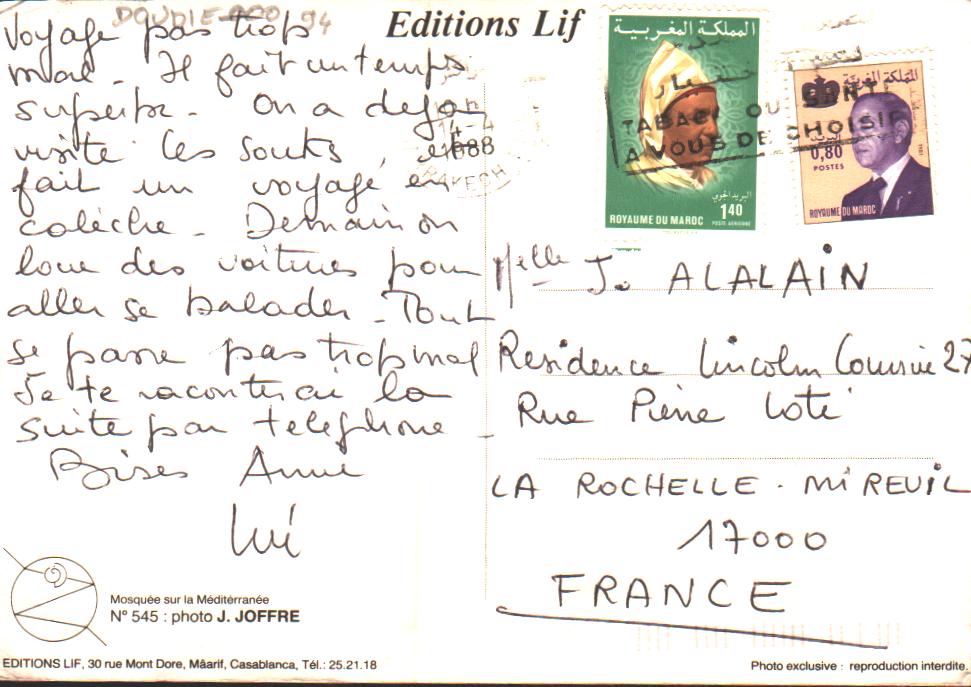 DOUBLE
Editions Lif
Voyage pas trop
mal - Il fait un temps
superbe - On a déjà
visité les souks, et
fait un voyage en
calèche - Demain on
loue des voitures pour
aller se balader - Tout
se passe pas trop mal
Je te raconterai la
suite par téléphone -
Bises Annie
المملكة المغربية
البريد الجوي
1,40
ROYAUME DU MAROC
POSTE AERIENNE
المملكة المغربية
0,80
POSTES
1981
ROYAUME DU MAROC
TABAC OU SANTE
A VOUS DE CHOISIR
14-4
1988
Melle J. ALALAIN
Residence Lincoln Coursive 27
Rue Pierre Loti
LA ROCHELLE - MIREUIL
17000
FRANCE
Mosquée sur la Méditérranée
N° 545 : photo J. JOFFRE
EDITIONS LIF, 30 rue Mont Dore, Mâarif, Casablanca, Tél.: 25.21.18
Photo exclusive : reproduction interdite.